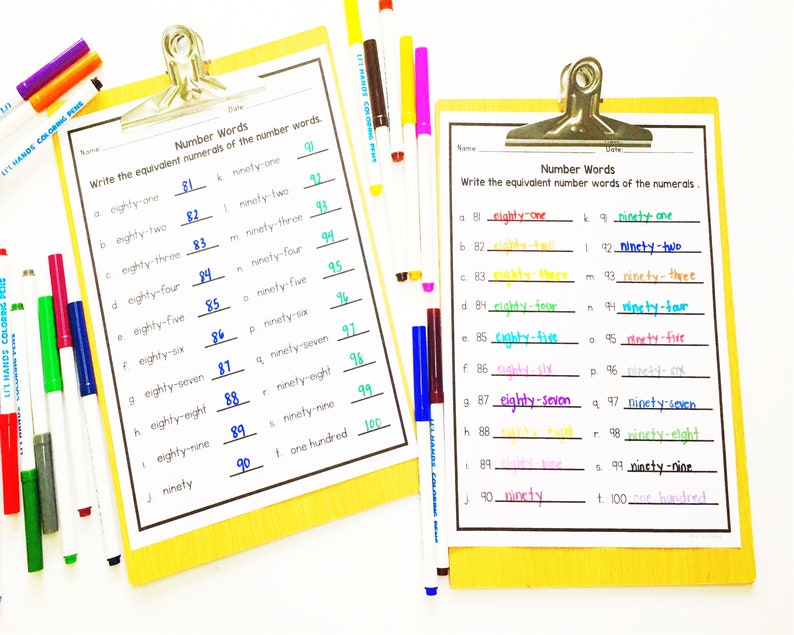 LI'L HANDS COLORING PENS
LI'L HANDS COLORING PENS
LI'L HANDS COLORING PENS
Name: Date:
Number Words
Write the equivalent numerals of the number words.
a. eighty-one 81 k. ninety-one 91
b. eighty-two 82 l. ninety-two 92
c. eighty-three 83 m. ninety-three 93
d. eighty-four 84 n. ninety-four 94
e. eighty-five 85 o. ninety-five 95
f. eighty-six 86 p. ninety-six 96
g. eighty-seven 87 q. ninety-seven 97
h. eighty-eight 88 r. ninety-eight 98
i. eighty-nine 89 s. ninety-nine 99
j. ninety 90 t. one hundred 100
Name: Date:
Number Words
Write the equivalent number words of the numerals .
a. 81 eighty-one k. 91 ninety-one
b. 82 eighty-two l. 92 ninety-two
c. 83 eighty-three m. 93 ninety-three
d. 84 eighty-four n. 94 ninety-four
e. 85 eighty-five o. 95 ninety-five
f. 86 eighty-six p. 96 ninety-six
g. 87 eighty-seven q. 97 ninety-seven
h. 88 eighty-eight r. 98 ninety-eight
i. 89 eighty-nine s. 99 ninety-nine
j. 90 ninety t. 100 one hundred